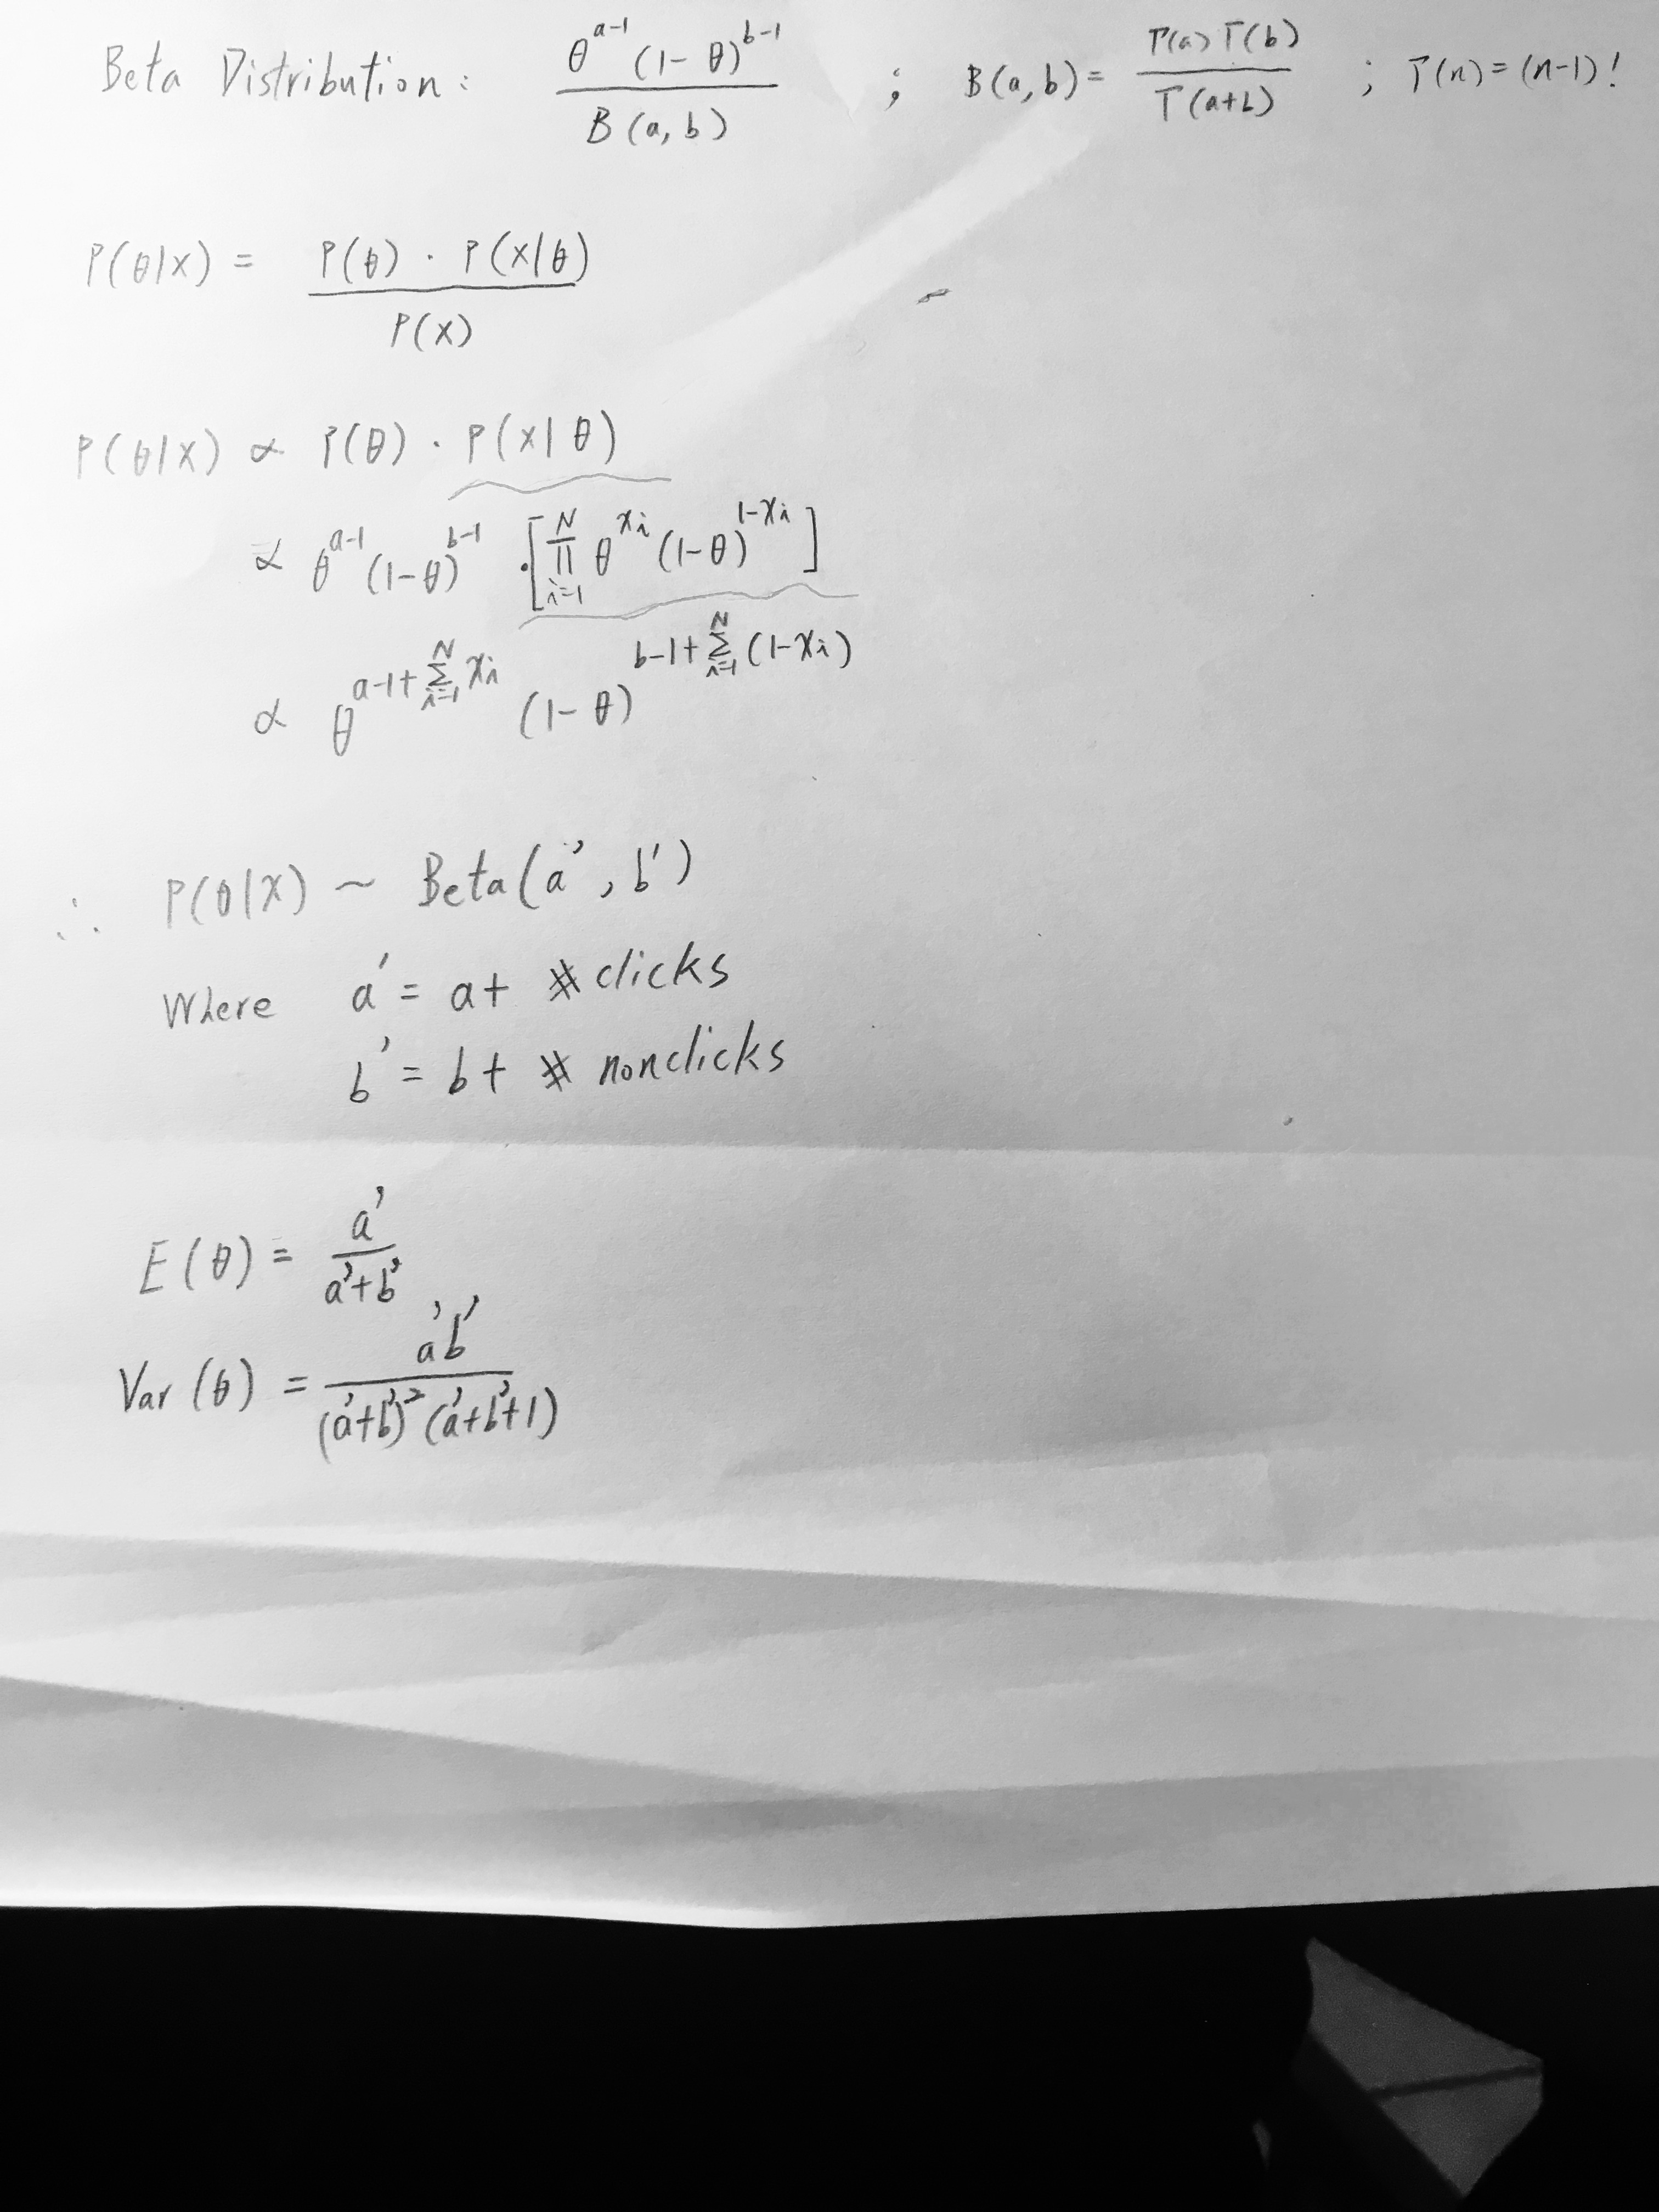 Beta Distribution: θ^(a-1) (1-θ)^(b-1) / B(a,b) ; B(a,b) = Γ(a)Γ(b) / Γ(a+b) ; Γ(n) = (n-1)!
P(θ|X) = P(θ) · P(X|θ) / P(X)
P(θ|X) ∝ P(θ) · P(X|θ)
∝ θ^(a-1) (1-θ)^(b-1) · [∏_{i=1}^{N} θ^(xi) (1-θ)^(1-xi)]
∝ θ^(a-1+∑_{i=1}^{N} xi) (1-θ)^(b-1+∑_{i=1}^{N} (1-xi))
∴ P(θ|X) ~ Beta(a', b')
Where a' = a + # clicks
b' = b + # nonclicks
E(θ) = a' / a'+b'
Var(θ) = a'b' / (a'+b')² (a'+b'+1)